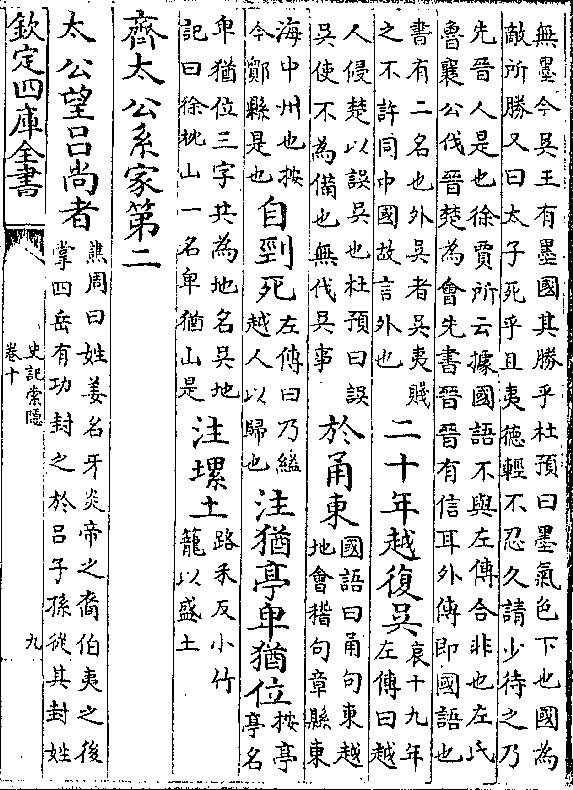 無墨今吳王有墨國其勝乎杜預曰墨氣色下也國為
敵所勝又曰太子死乎且夷德輕不忍久請少待之乃
先晉人是也徐賈所云據國語不與左傳合非也左氏
魯襄公伐晉楚為會先書晉晉有信耳外傳即國語也
書有二名也外吳者吳夷賤
之不許同中國故言外也
二十年越復吳
哀十九年
左傳曰越
人侵楚以誤吳也杜預曰誤
吳使不為備也無伐吳事
於甬東
國語曰甬句東越
地會稽句章縣東
海中州也按
今鄮縣是也
自剄死
左傳曰乃縊
越人以歸也
注猶亭卑猶位
按亭
亭名
卑猶位三字共為地名吳地
記曰徐枕山一名卑猶山是
注㙼土
路禾反小竹
籠以盛土
齊太公系家第二
太公望呂尚者
譙周曰姓姜名牙炎帝之裔伯夷之後
掌四岳有功封之於呂子孫從其封姓
欽定四庫全書
史記索隱
卷十
九